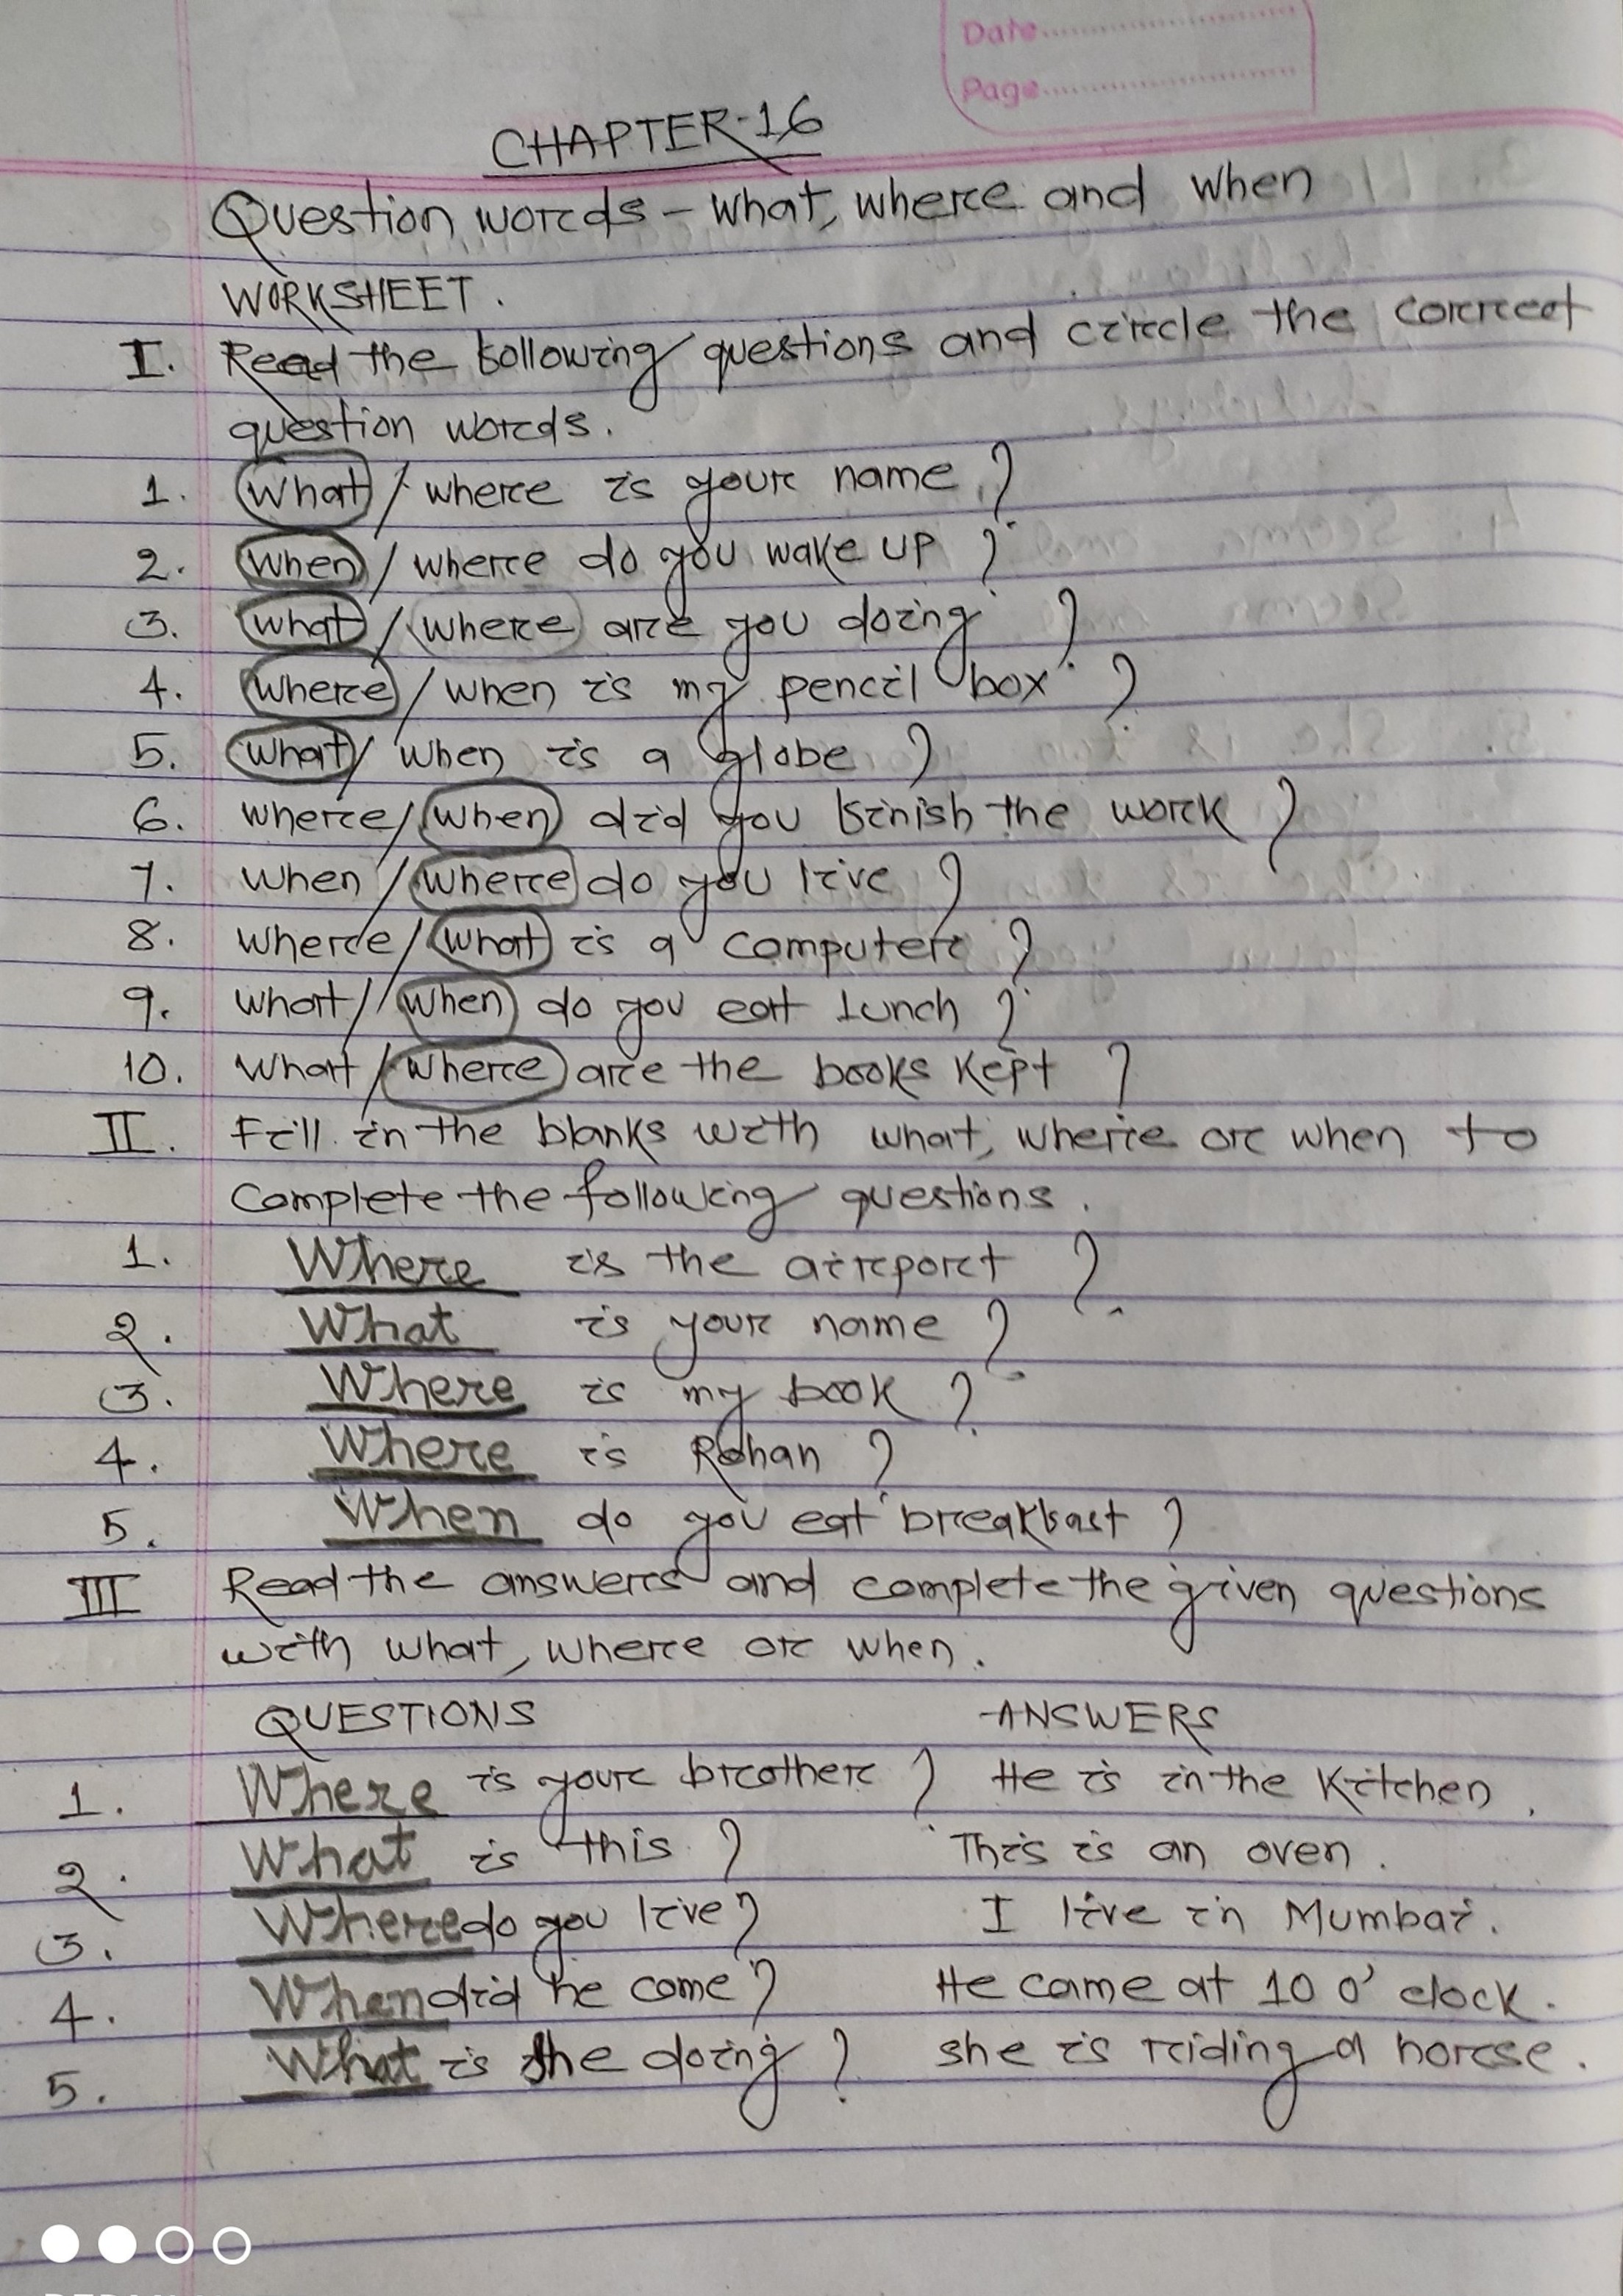 Date
Page
CHAPTER-16
Question words - what, where and when
WORKSHEET.
I. Read the following questions and circle the correct
question words.
1. What / where is your name ?
2. When / where do you wake up ?
3. what / where are you doing ?
4. where / when is my pencil box ?
5. what / when is a globe ?
6. where / when did you finish the work ?
7. when / where do you live ?
8. where / what is a computer ?
9. what / when do you eat lunch ?
10. what / where are the books kept ?
II. Fill in the blanks with what, where or when to
complete the following questions.
1. Where is the airport ?
2. What is your name ?
3. Where is my book ?
4. Where is Rohan ?
5. When do you eat breakfast ?
III Read the answers and complete the given questions
with what, where or when.
QUESTIONS ANSWERS
1. Where is your brother ? He is in the Kitchen.
2. What is this ? This is an oven.
3. Where do you live ? I live in Mumbai.
4. When did he come ? He came at 10 o' clock.
5. What is she doing ? she is riding a horse.